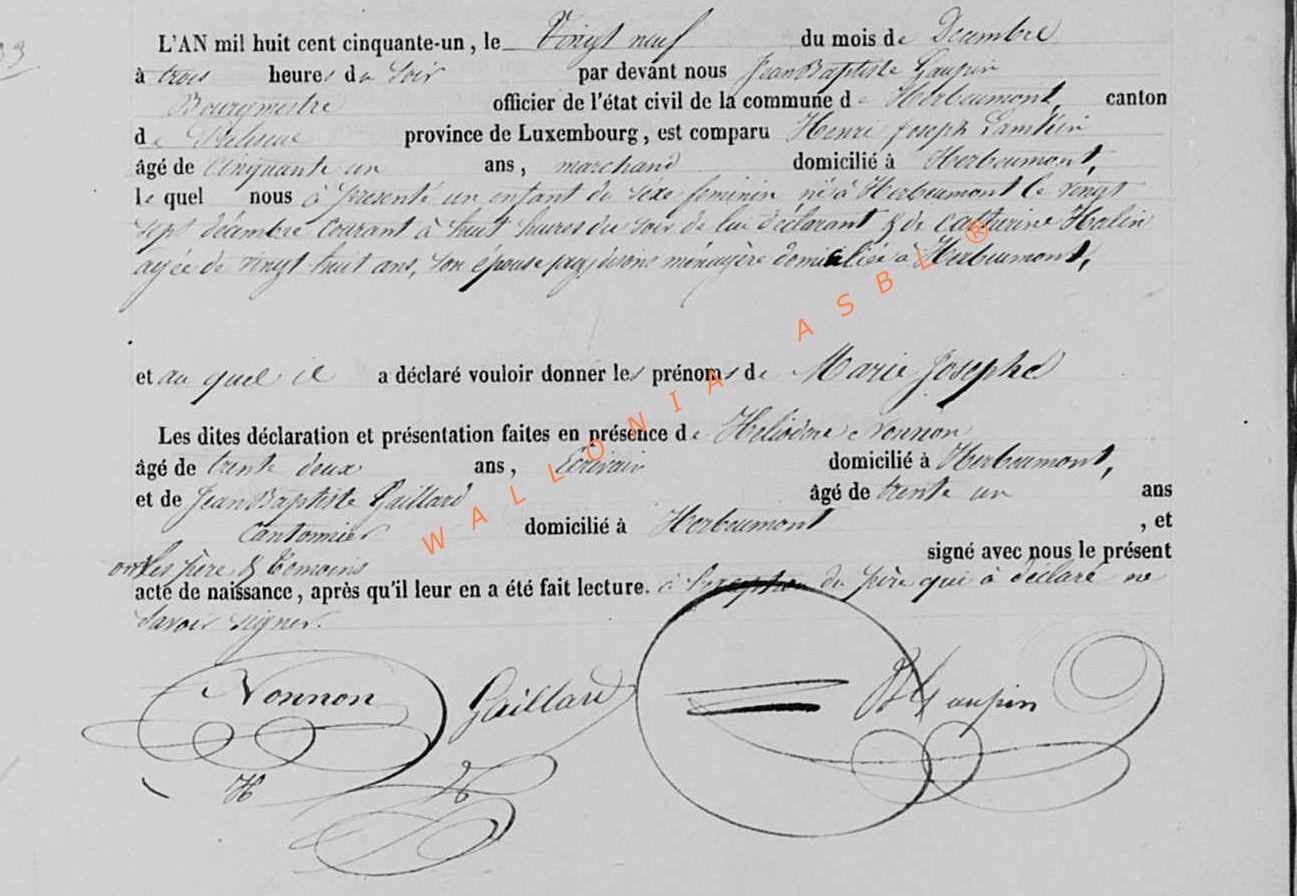 33
L'AN mil huit cent cinquante-un, le Vingt neuf du mois de Decembre
à trois heures du soir par devant nous Jean Baptiste Gaupin
Bourgmestre officier de l'état civil de la commune de Herbeumont, canton
de Paliseul province de Luxembourg, est comparu Henri Joseph Lamkin
âgé de Cinquante un ans, marchand domicilié à Herbeumont,
le quel nous à presenté un enfant du sexe feminin né à Herbeumont le vingt
sept décembre courant à huit heures du soir de lui déclarant & de Catherine Halin
agée de vingt huit ans, son épouse menagère domiciliée à Herbeumont,
et au quel il a déclaré vouloir donner les prénoms de Marie Josephe
Les dites déclaration et présentation faites en présence de Heliodore Nonnon
âgé de trente deux ans, Ecrivain domicilié à Herbeumont,
et de Jean Baptiste Gaillard âgé de trente un ans
Cantonnier domicilié à Herbeumont, et
ont les père & temoins signé avec nous le présent
acte de naissance, après qu'il leur en a été fait lecture. à l'exception du père qui à déclaré ne
savoir signer.
Nonnon Gaillard JB Gaupin
H
WALLONIA ASBL®